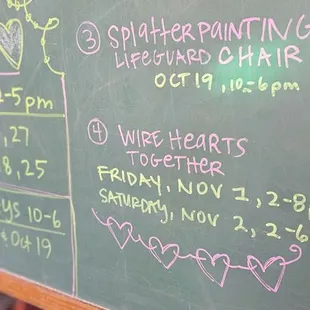 -5 pm
, 27
8, 25
ys 10-6
& Oct 19
③ Splatter PAINTING
LIFEGUARD CHAIR
OCT 19, 10-6pm
④ WIRE HEARTS
TOGETHER
FRIDAY, NOV 1, 2-8
SATURDAY, NOV 2, 2-6